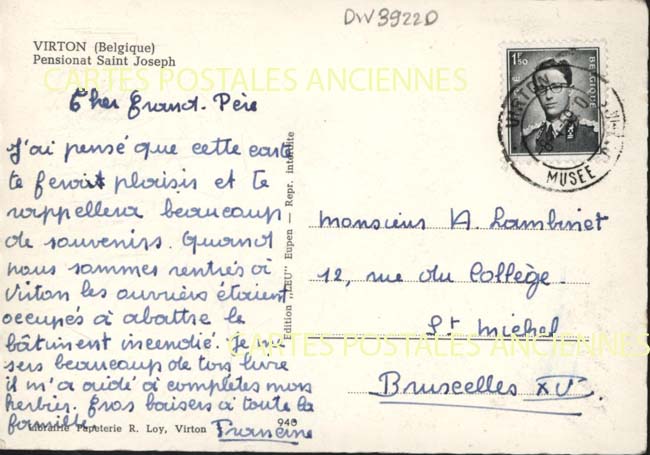 DW3922D
VIRTON (Belgique)
Pensionat Saint Joseph
CARTES POSTALES ANCIENNES
Cher Grand-Père
J'ai pensé que cette carte
te ferait plaisir et te
rappellera beaucoup
de souvenirs. Quand
nous sommes rentrés à
Virton les ouvriers étaient
occupés à abattre le
bâtiment incendié. Je me
sers beaucoup de ton livre
il m'a aidé à completer mon
herbier. Gros baisers à toute la
famille.
Francine
Librairie Papeterie R. Loy, Virton
940
Edition „LEU" Eupen — Repr. interdite
1F50
BELGIQUE
VIRTON
MUSEE
Monsieur A. Lambinet
12, rue du Collège
St Michel
Bruxelles XVe.
CARTES POSTALES ANCIENNES